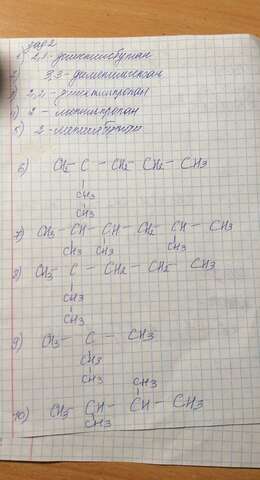 зад2
1) 2,2-диметилбутан
3,3-диметилгексан
2,2-диметилпропан
4) 2-метилпропан
5) 2-метилбутан
6) CH3 - C - CH2 - CH2 - CH3
CH3
CH3
7) CH3 - CH - CH - CH2 - CH - CH3
CH3 CH3 CH3
8) CH3 - C - CH2 - CH2 - CH3
CH3
CH3
9) CH3 - C - CH3
CH3
CH3
CH3
10) CH3 - CH - CH - CH3
CH3